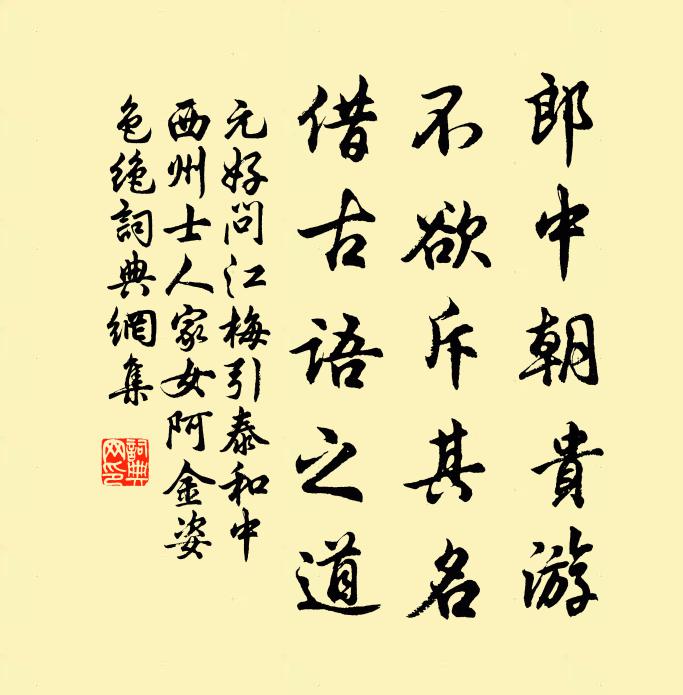 郎中朝貴游
不欲斥其名
借古語之道
元好問江梅引泰和中
西州士人家女阿金姿
色绝詞典網集
詞典网印